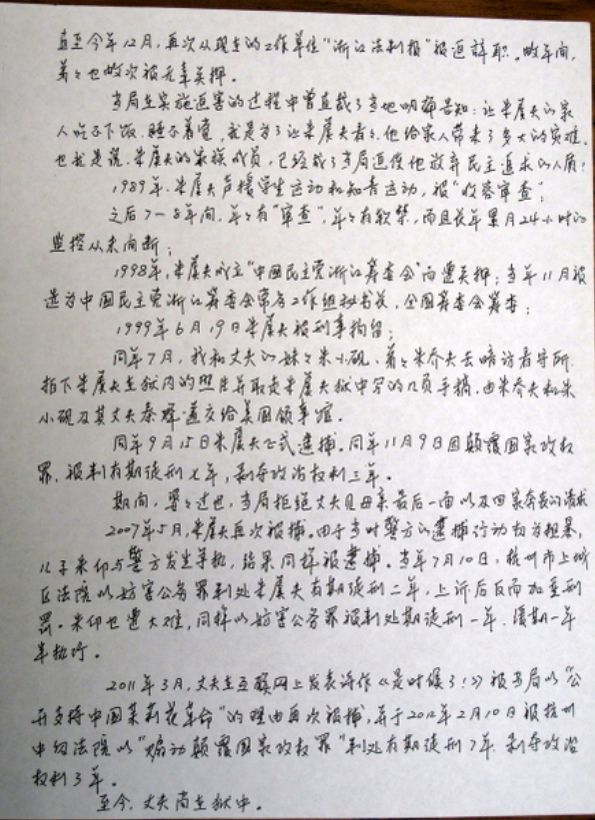 直至今年12月，再次从现在的工作单位“浙江法制报”被迫辞职。数年间，
弟弟也数次被无辜关押。
当局在实施迫害的过程中曾直截了当地明确告知：让朱虞夫的家
人吃不下饭、睡不着觉，就是为了让朱虞夫看看，他给家人带来了多大的灾难。
也就是说，朱虞夫的家族成员，已经成了当局迫使他放弃民主追求的人质！
1989年，朱虞夫声援学生运动和知青运动，被“收容审查”；
之后7—8年间，年年有“审查”，年年有软禁，而且长年累月24小时的
监控从未间断；
1998年，朱虞夫成立“中国民主党浙江筹委会”而遭关押；当年11月被
选为中国民主党浙江筹委会常务工作组秘书长，全国筹委会筹委；
1999年6月19日朱虞夫被刑事拘留；
同年7月，我和丈夫的妹妹朱小砚、弟弟朱乔夫去暗访看守所，
拍下朱虞夫在狱内的照片并取走朱虞夫狱中写的几页手稿，由朱乔夫和朱
小砚及其丈夫秦辉递交给美国领事馆。
同年9月15日朱虞夫正式逮捕。同年11月9日因颠覆国家政权
罪，被判有期徒刑七年，剥夺政治权利三年。
期间，婆婆过世，当局拒绝丈夫见母亲最后一面以及回家奔丧的请求
2007年5月，朱虞夫再次被捕。由于当时警方的逮捕行动极为粗暴，
儿子朱仰与警方发生争执，结果同样被逮捕。当年7月10日，杭州市上城
区法院以妨害公务罪判处朱虞夫有期徒刑二年，上诉后反而加重刑
罚。朱仰也遭大难，同样以妨害公务罪被判处期徒刑一年，缓期一年
半执行。
2011年3月，丈夫在互联网上发表诗作《是时候了！》被当局以“公
开支持中国茉莉花革命”的理由再次被捕，并于2012年2月10日被杭州
中级法院以“煽动颠覆国家政权罪”判处有期徒刑7年，剥夺政治
权利3年。
至今，丈夫尚在狱中。